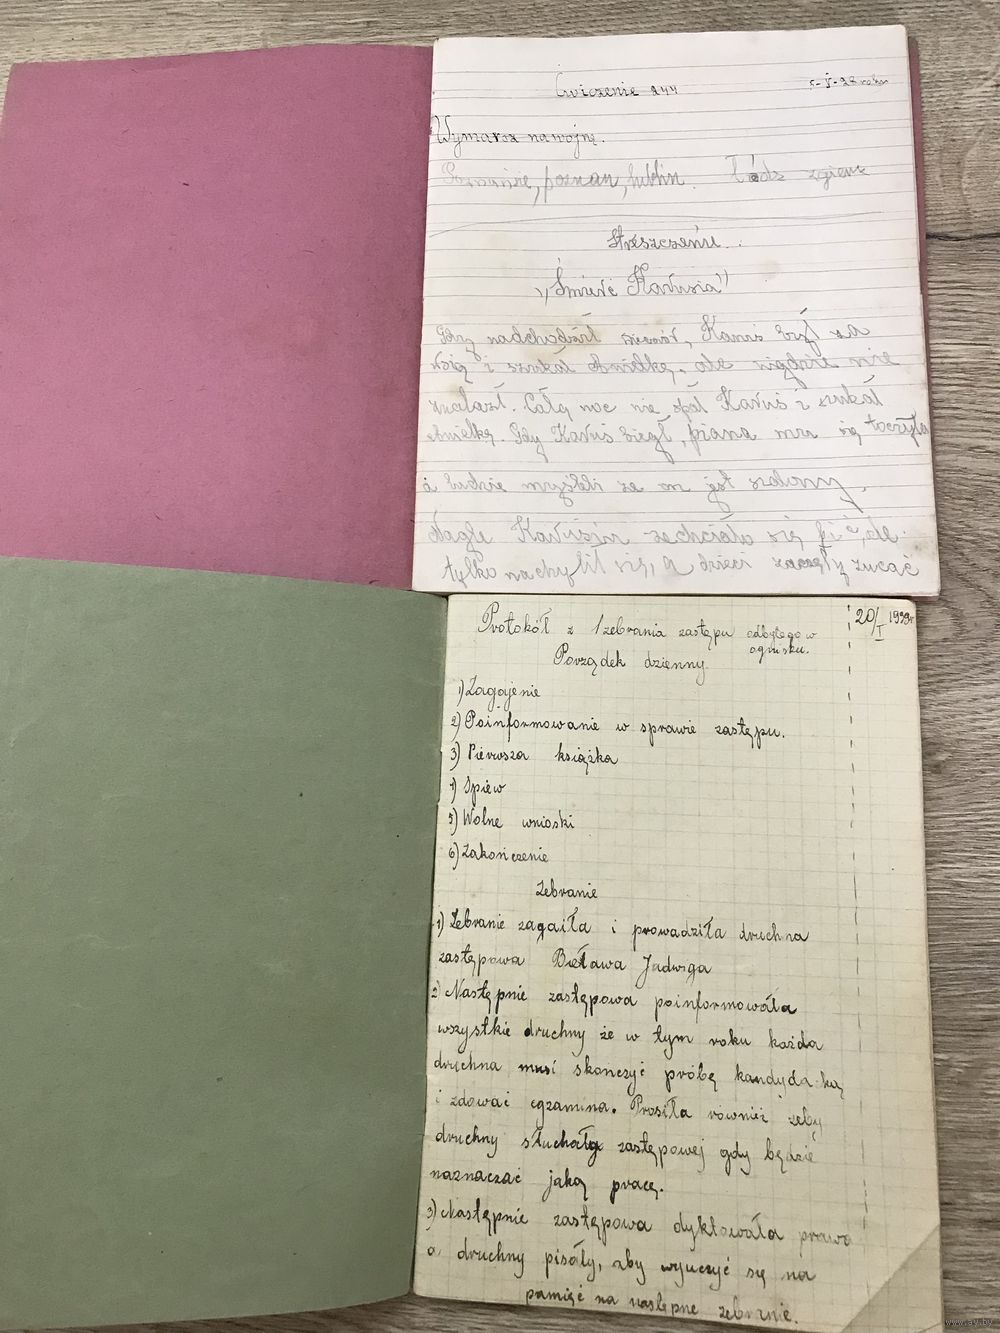 Ćwiczenie 244
Wymarsz na wojnę.
poznan, lublin. Łódz zgierz
Streszczeniu.
"Śmierć Karusia"
Gdy nadchodził wieczór, Karus
i szukał Anielkę, ale nigdzie nie
znalazł. Całą noc nie spał Karuś i szukał
Anielkę. Gdy Karuś biegł, piana mu się toczyła
a ludzie myśleli że on jest szalony.
Nagle Karusiu zachciało się pić, ale
tylko nachylił się, a dzieci zaczęły zucać
20/I 1939r
Protokół z 1 zebrania zastępu odbytego w
ognisku.
Porządek dzienny
1) Zagajenie
2) Poinformowanie w sprawie zastępu.
3) Pierwsza książka
4) Spiew
5) Wolne wnioski
6) Zakończenie
Zebranie
1) Zebranie zagaiła i prowadziła druchna
zastępowa Jadwiga
2) Następnie zastępowa poinformowała
wszystkie druchny że w tym roku każda
druchna musi skonczyć próbę
i zdawać egzamina. Prosiła rownież żeby
druchny słuchały zastępowej gdy będzie
naznaczać jaką pracę.
3) Następnie zastępowa dyktowała prawo
a druchny pisały, aby wyuczyć się na
pamięć na następne zebranie.
www.ay.by